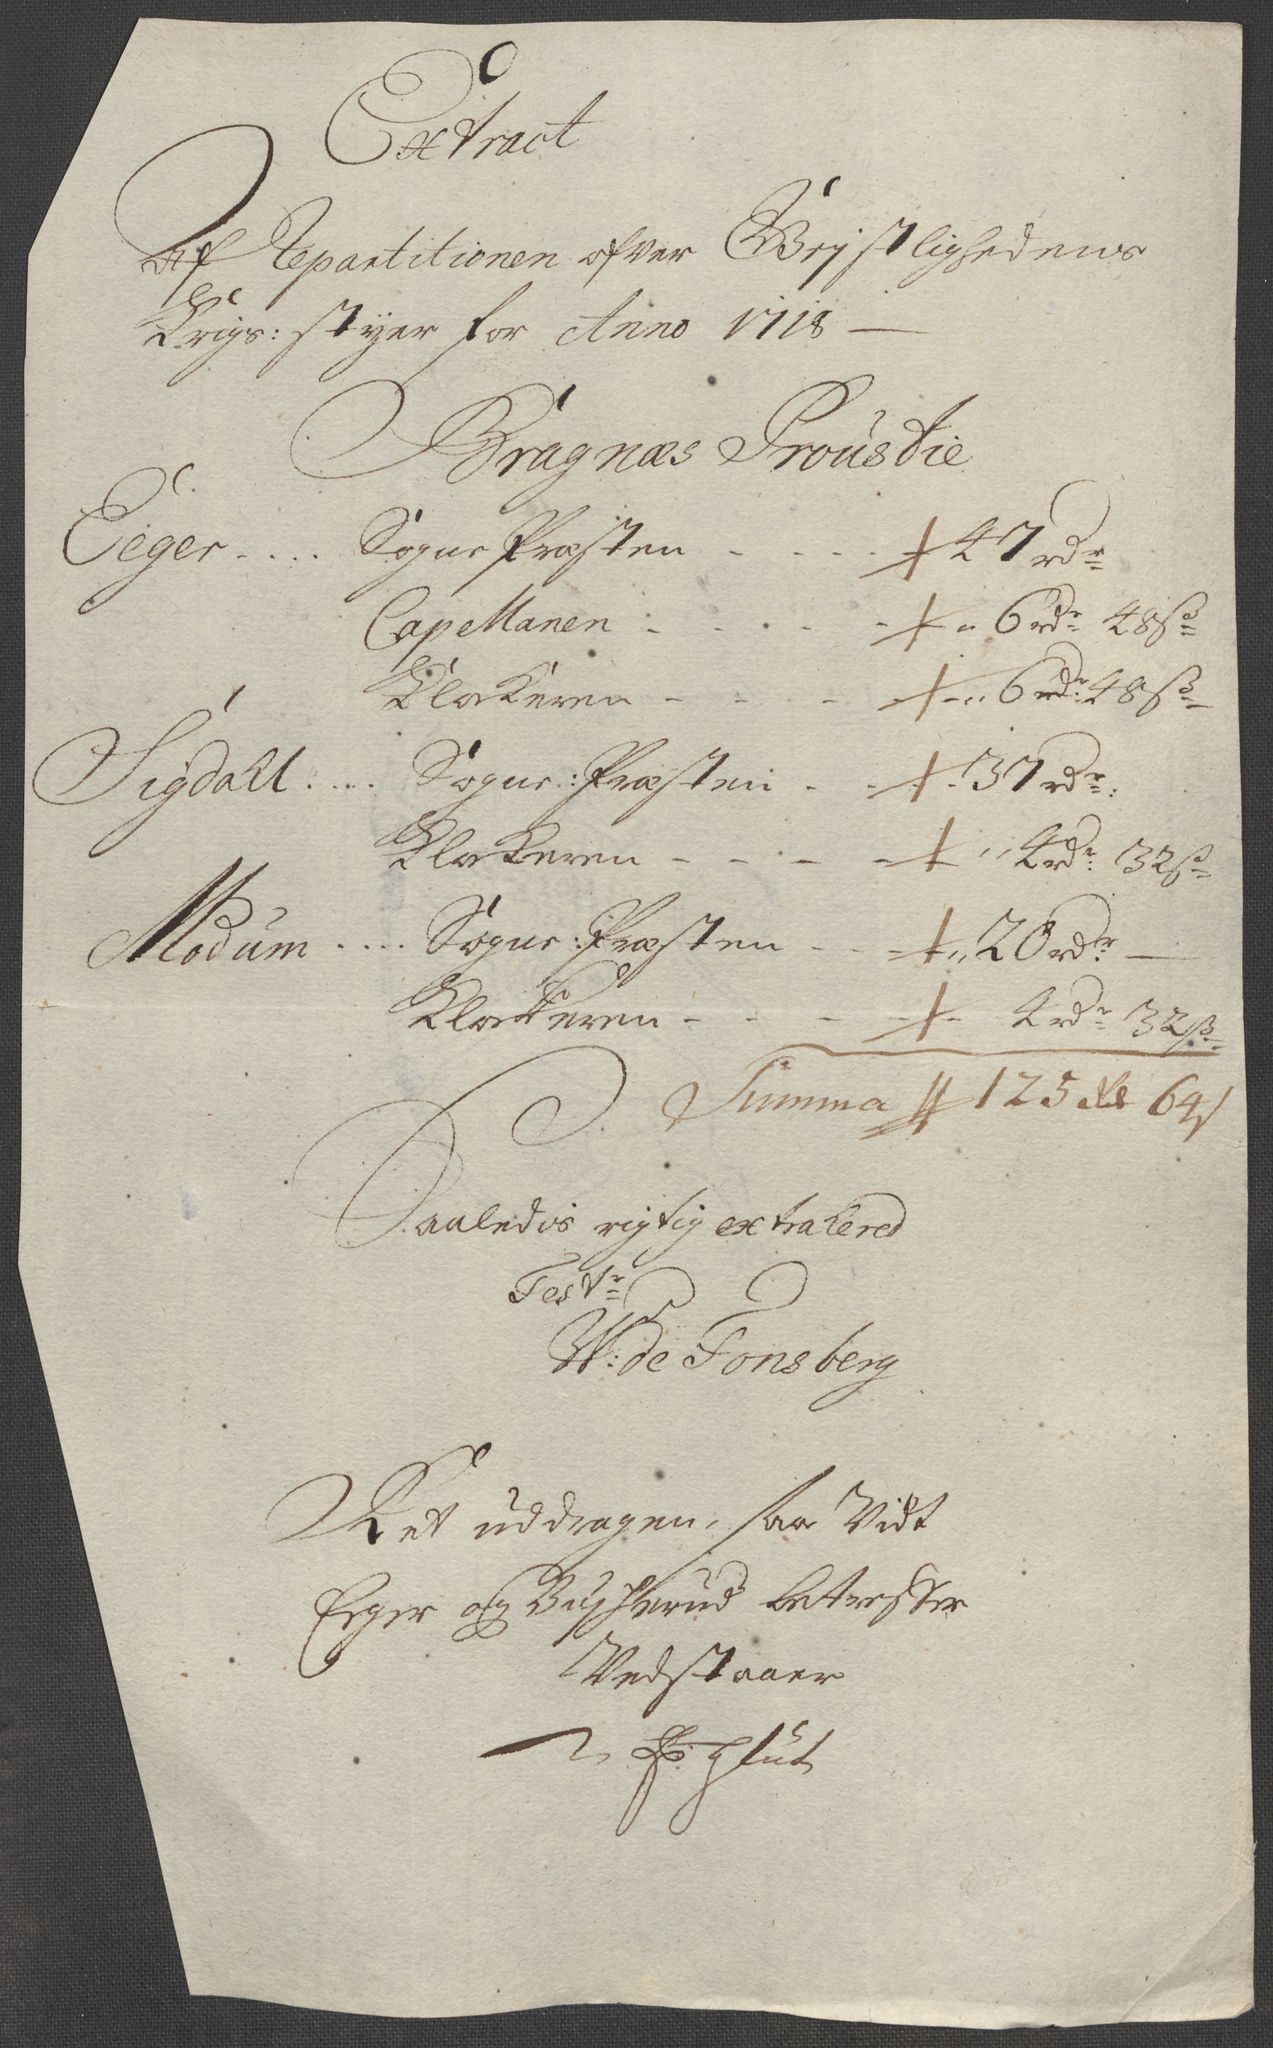 Extract
Af Repartitionen ofver Geistlighedens
Krigs: styer for Anno 1718 —
Bragnæs Proustie
Eeger .... Sogne Præsten - - - - 47 rdr
Capellanen - - - - 6 rdr 48 ß
Klokeren - - - - 6 rdr 48 ß
Sigdall .... Sogne: Præsten - - - 37 rdr
Klokeren - - - - 4 rdr 32 ß
Modum .... Sogne: Præsten - - - 20 rdr —
Klokeren - - - - 4 rdr 32 ß
Summa 125 dlr 64 ß
Saaledis rigtig extrakered
Testr
W: de Tonsberg
Ret uddragen, saa Vidt
Eger og Buscherud betreffer
Vedstaaer